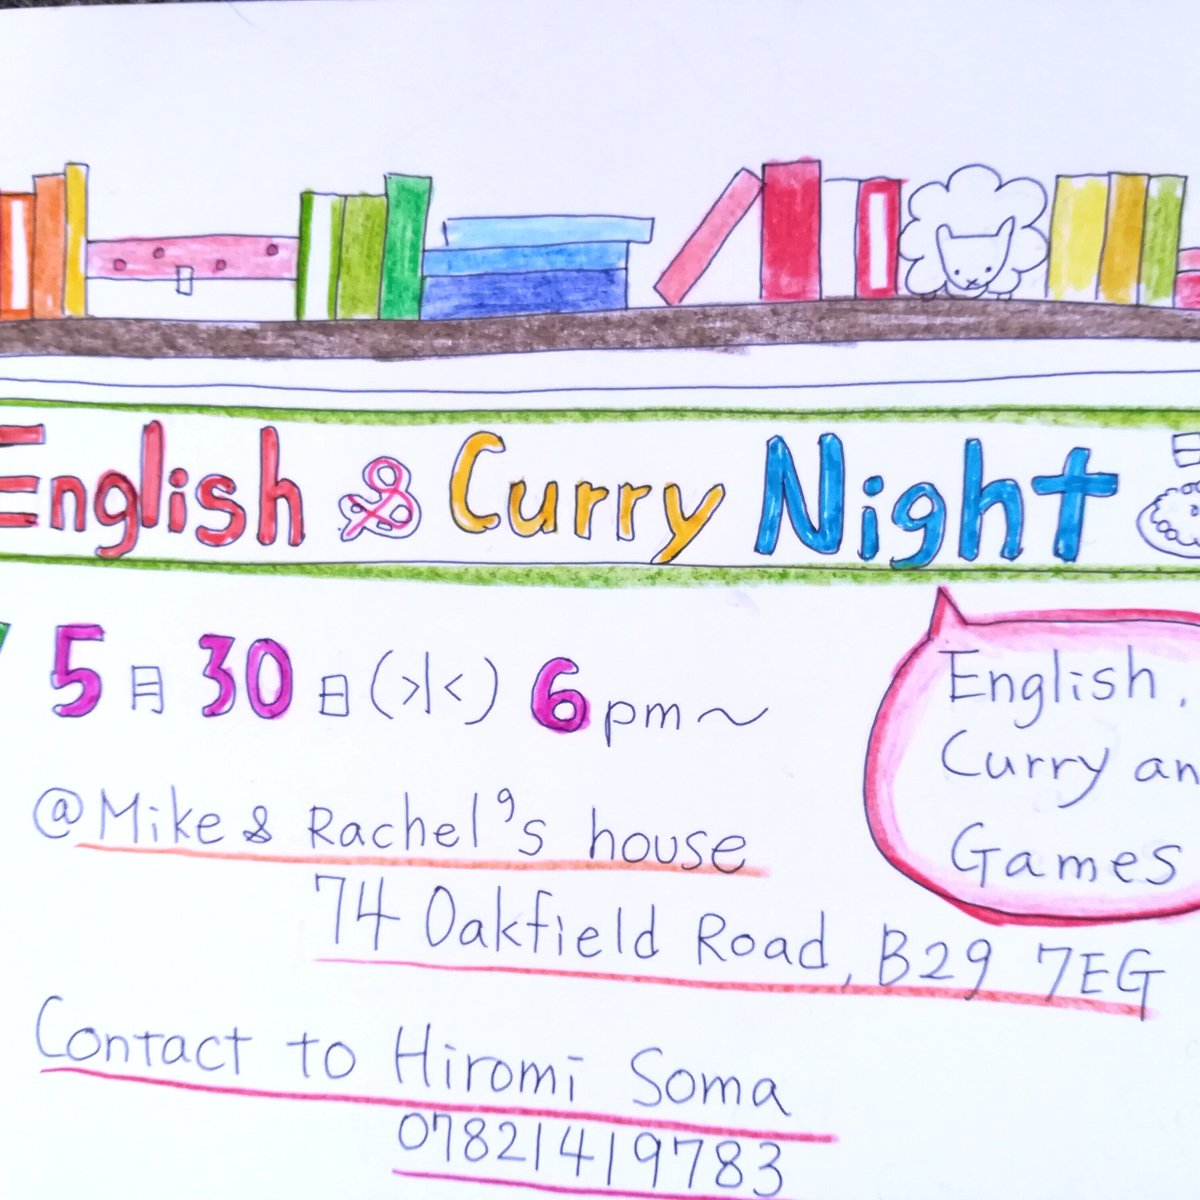 English & Curry Night
5月30日(水) 6pm〜
English,
Curry an
Games
@Mike & Rachel's house
74 Oakfield Road, B29 7EG
Contact to Hiromi Soma
07821419783